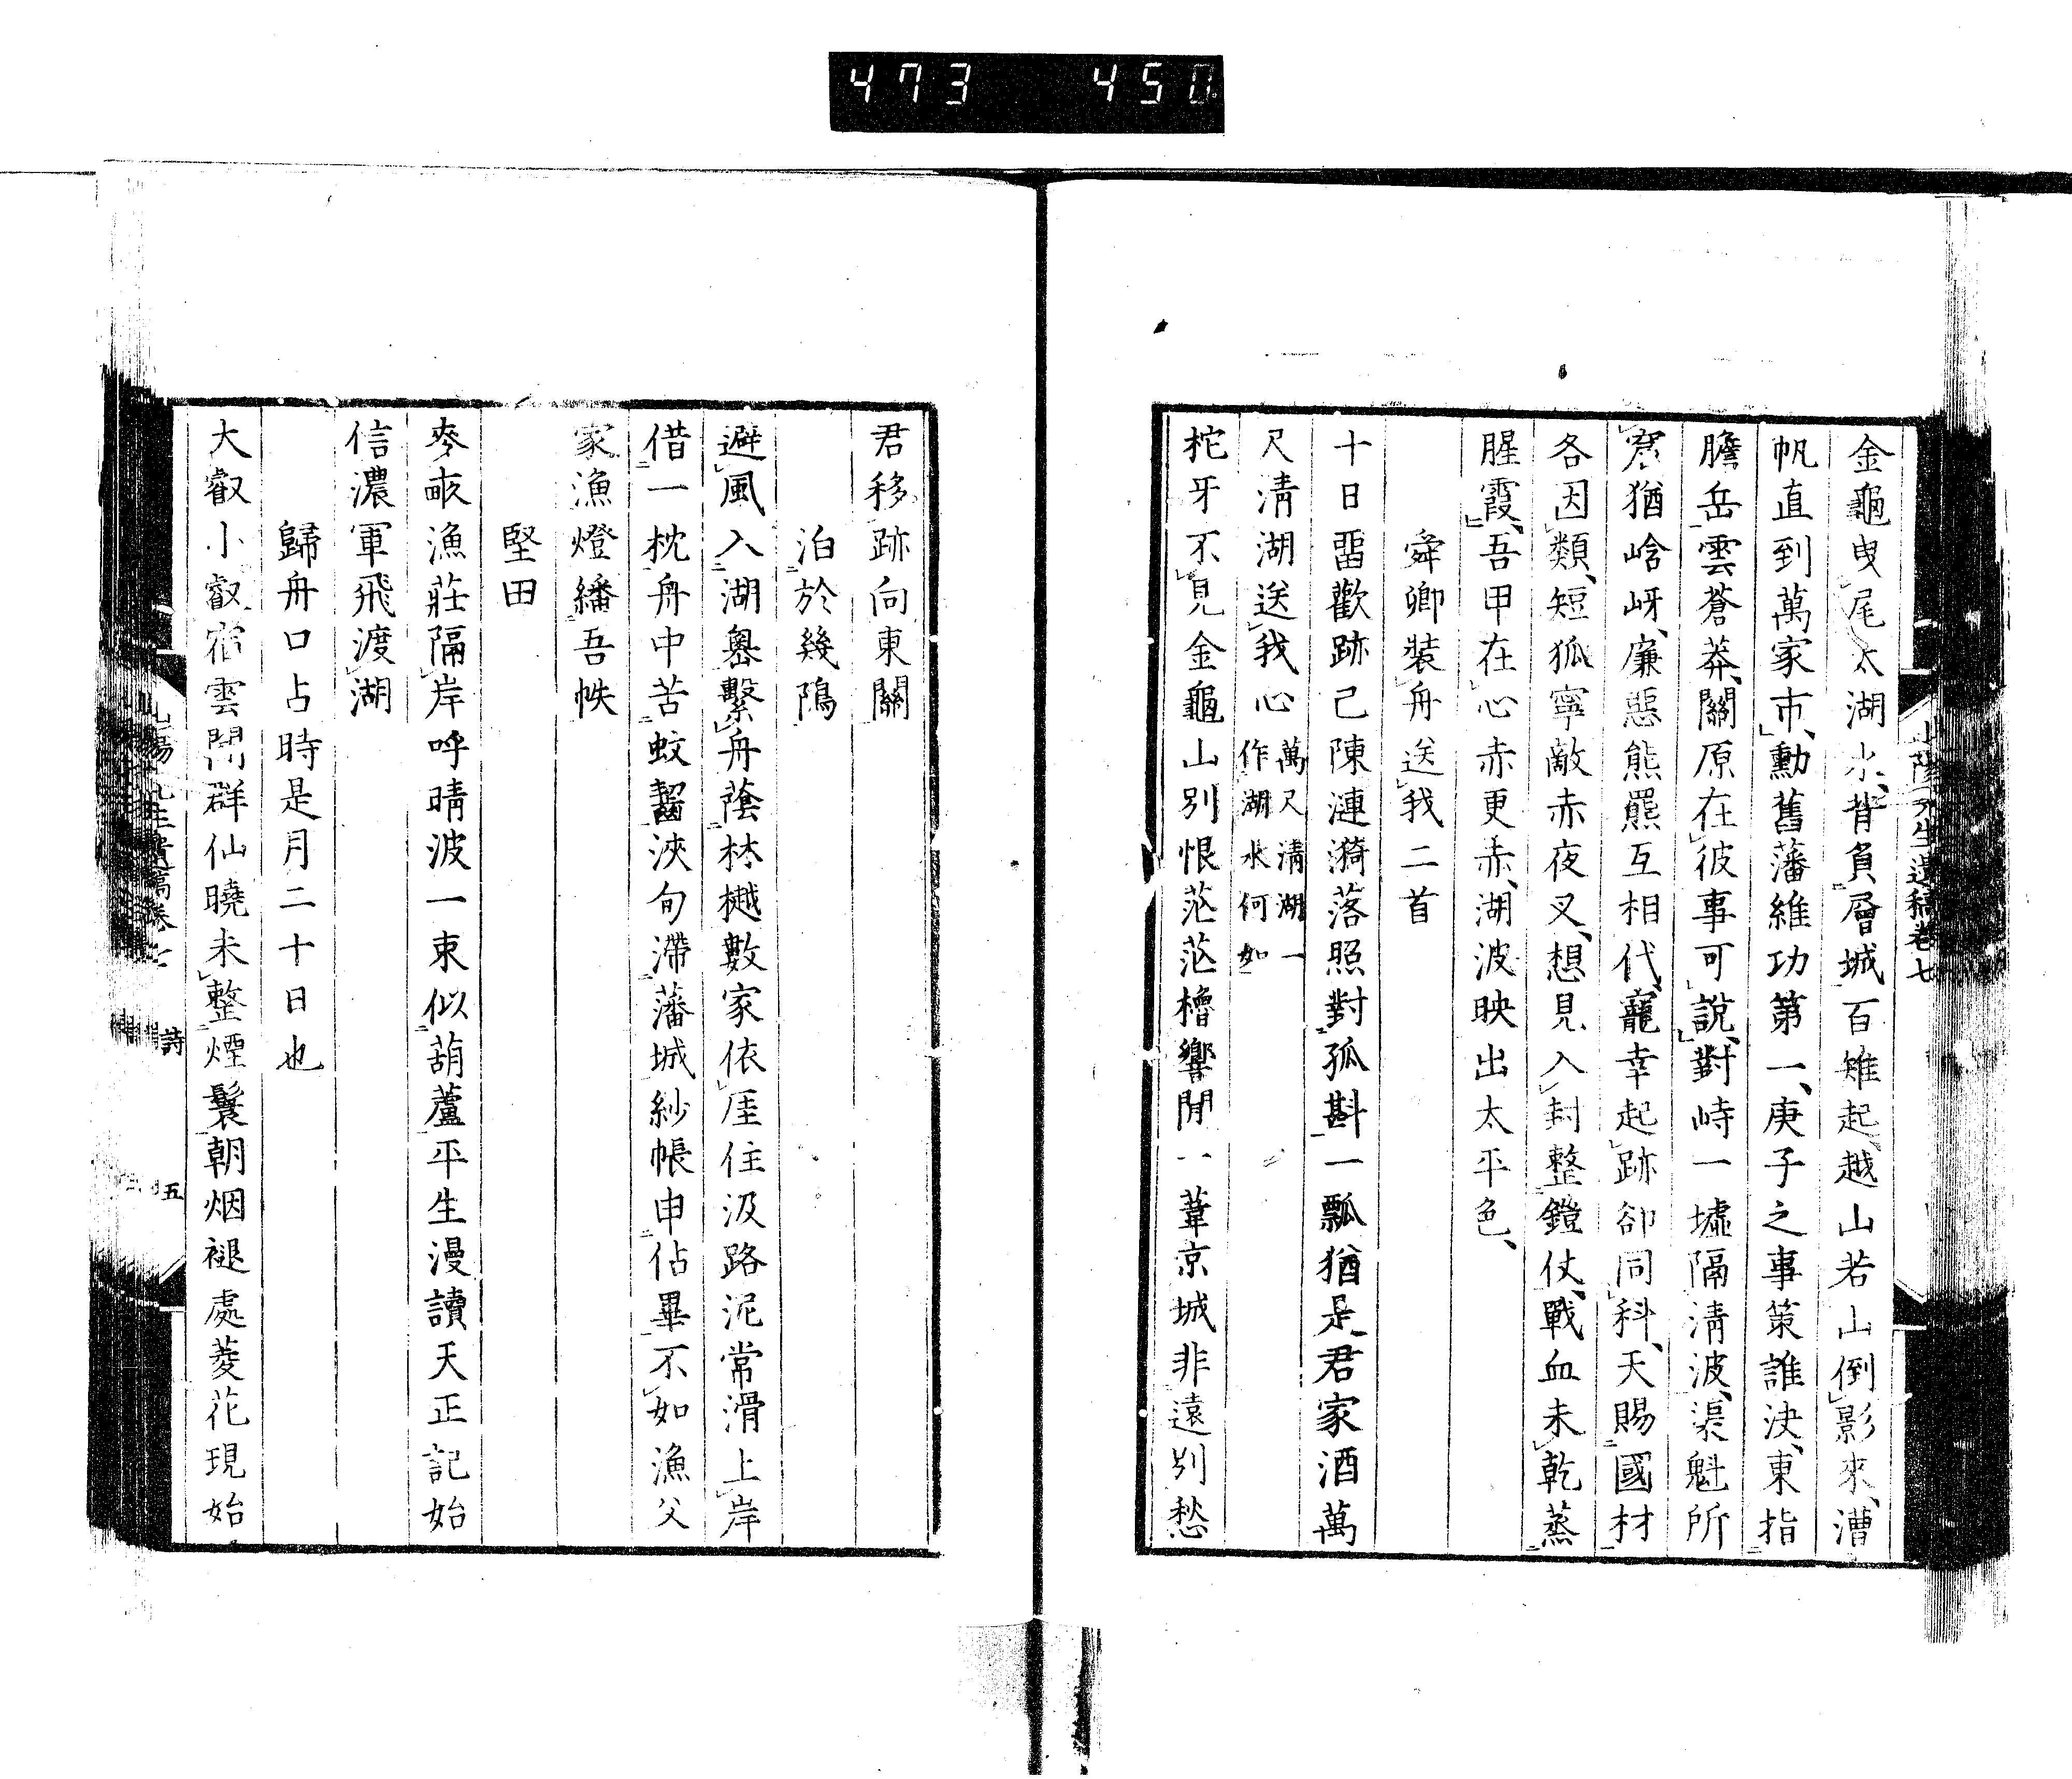 473 450
金龜曳尾太湖水、背負層城百雉起、越山若山倒影來、漕
帆直到萬家市、勳舊藩維功第一、庚子之事策誰決、東指
膽岳雲蒼莽、關原在彼事可說、對峙一墟隔清波、渠魁所
窟猶峆岈、廉惡熊羆互相代、寵幸起跡卻同科、天賜國材
各因類、短狐寧敵赤夜叉、想見入封整鐙仗、戰血未乾蒸
腥霞、吾甲在心赤更赤、湖波映出太平色、
舜卿裝舟送我二首
十日畱歡跡已陳漣漪落照對孤斟一瓢猶是君家酒萬
尺清湖送我心 萬尺清湖一作湖水何如
柁牙不見金龜山別恨茫茫櫓響閒一葦京城非遠別愁
君移跡向東關
泊於幾隝
避風入湖嶴繫舟蔭林樾數家依厓住汲路泥常滑上岸
借一枕舟中苦蚊齧浹旬滯藩城紗帳申佔畢不如漁父
家漁燈繙吾帙
堅田
麥畝漁莊隔岸呼晴波一束似葫蘆平生漫讀天正記始
信濃軍飛渡湖
歸舟口占時是月二十日也
大叡小叡宿雲閒群仙曉未整煙鬟朝烟褪處菱花現始
山陽先生遺稿卷七
詩
五